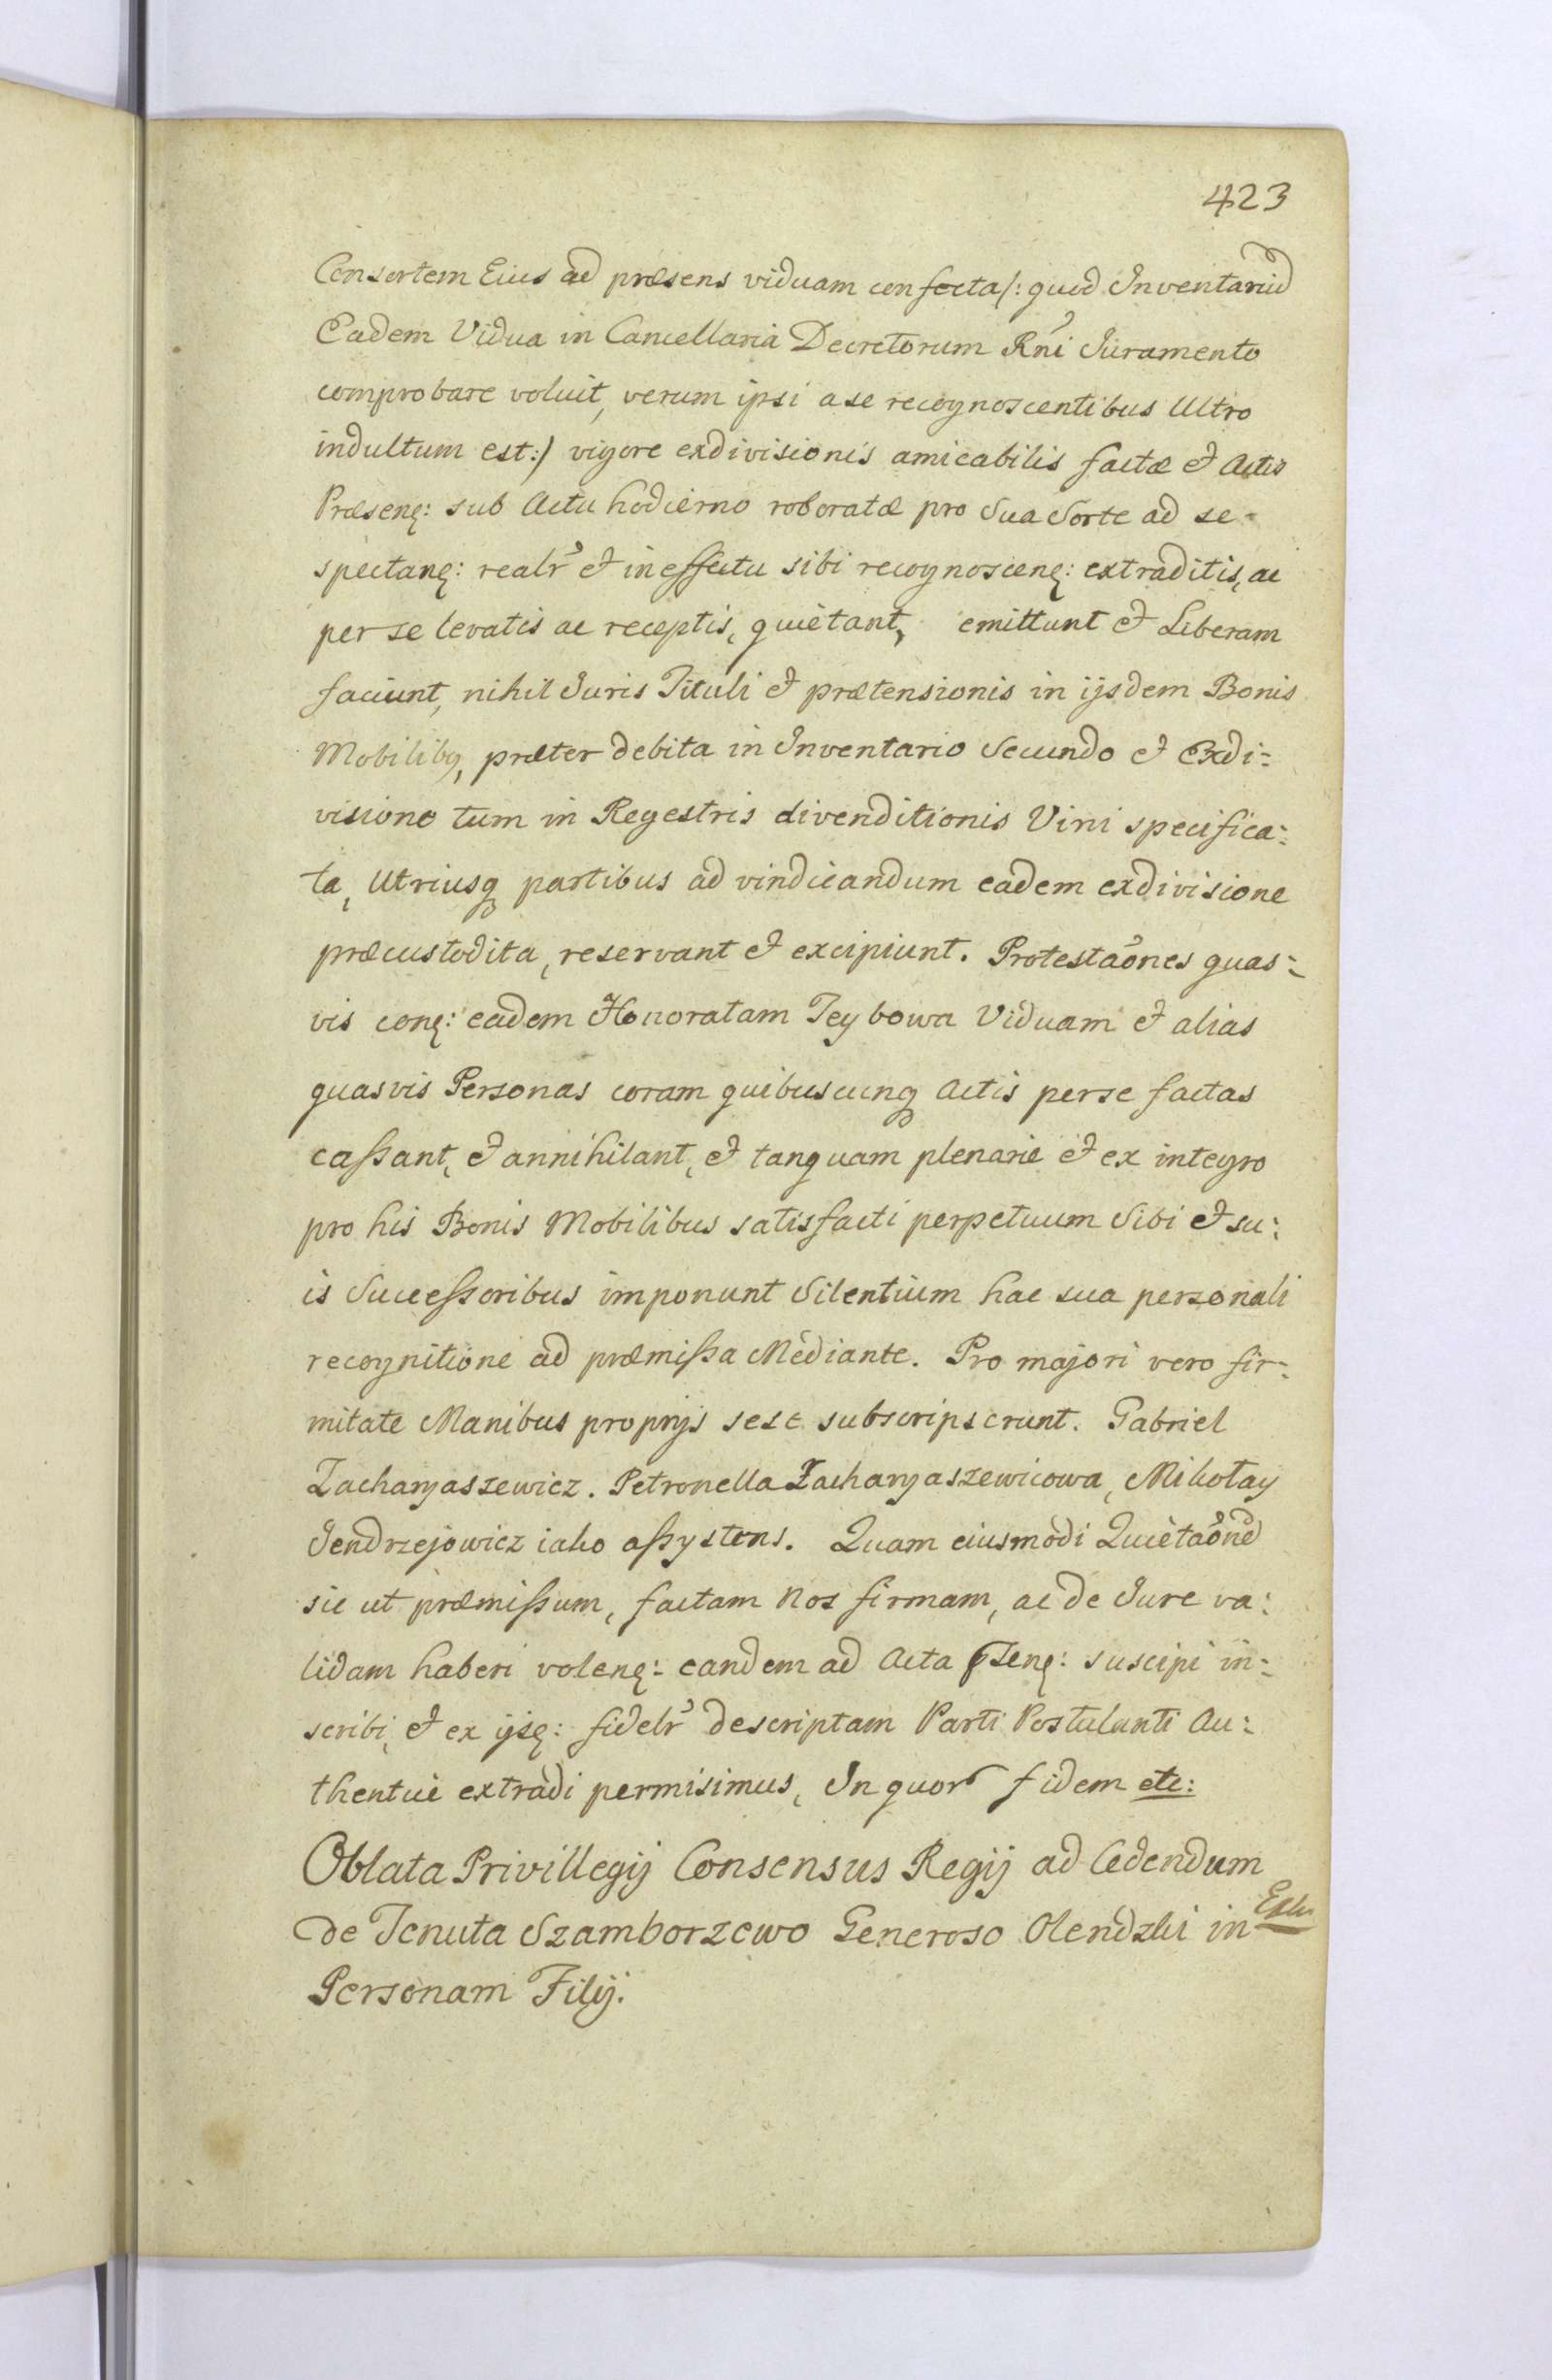 423
Consortem Eius ad præsens viduam confecta /: quod Inventariu͂
Eadem Vidua in Cancellaria Decretorum Rn̉i Juramento
comprobare voluit, verum ipsi a se recognoscentibus Ultro
indultum est :/ vigore exdivisionis amicabilis factæ et Actis
Præsenę: sub Actu hodierno roboratæ pro Sua Sorte ad se
spectanę: realr̉ et in effectu sibi recognoscenę: extraditis, ac
per se levatis ac receptis, quiètant, emittunt et Liberam
faciunt, nihil Juris Tituli et prætensionis in ijsdem Bonis
Mobilibꝫ, præter debita in Inventario Secundo et Exdi-
visione tum in Regestris divenditionis Vini specifica-
ta, Utriusqꝫ partibus ad vindicandum eadem exdivisione
præcustodita, reservant et excipiunt. Protestaõnes quas-
vis conę: eadem Honoratam Teybowa Viduam et alias
quasvis Personas coram quibuscunqꝫ Actis per se factas
caßant, et annihilant, et tanquam plenarie et ex integro
pro his Bonis Mobilibus satisfacti perpetuum Sibi et su:
is Succeßoribus imponunt Silentium hac sua personali
recognitione ad præmißa Mediante. Pro majori vero fir-
mitate Manibus proprijs sese subscripserunt. Gabriel
Zacharjaszewicz. Petronella Zacharjaszewicowa, Mikołay
Jendrzejowicz iako aßystens. Quam eiusmodi Quietaõne͂
sic ut præmißum, factam Nos firmam, ac de Jure va:
lidam haberi volenę: eandem ad Acta p̃senę: suscipi in-
scribi, et ex ijsę: fidelr̉ descriptam Parti Postulanti Au:
thentice extradi permisimus, In quorꝝ fidem etc:
Oblata Privillegij Consensus Regij ad Cedendum
de Tenuta Szamborzewo Generoso Olendzki in
Personam Filij.